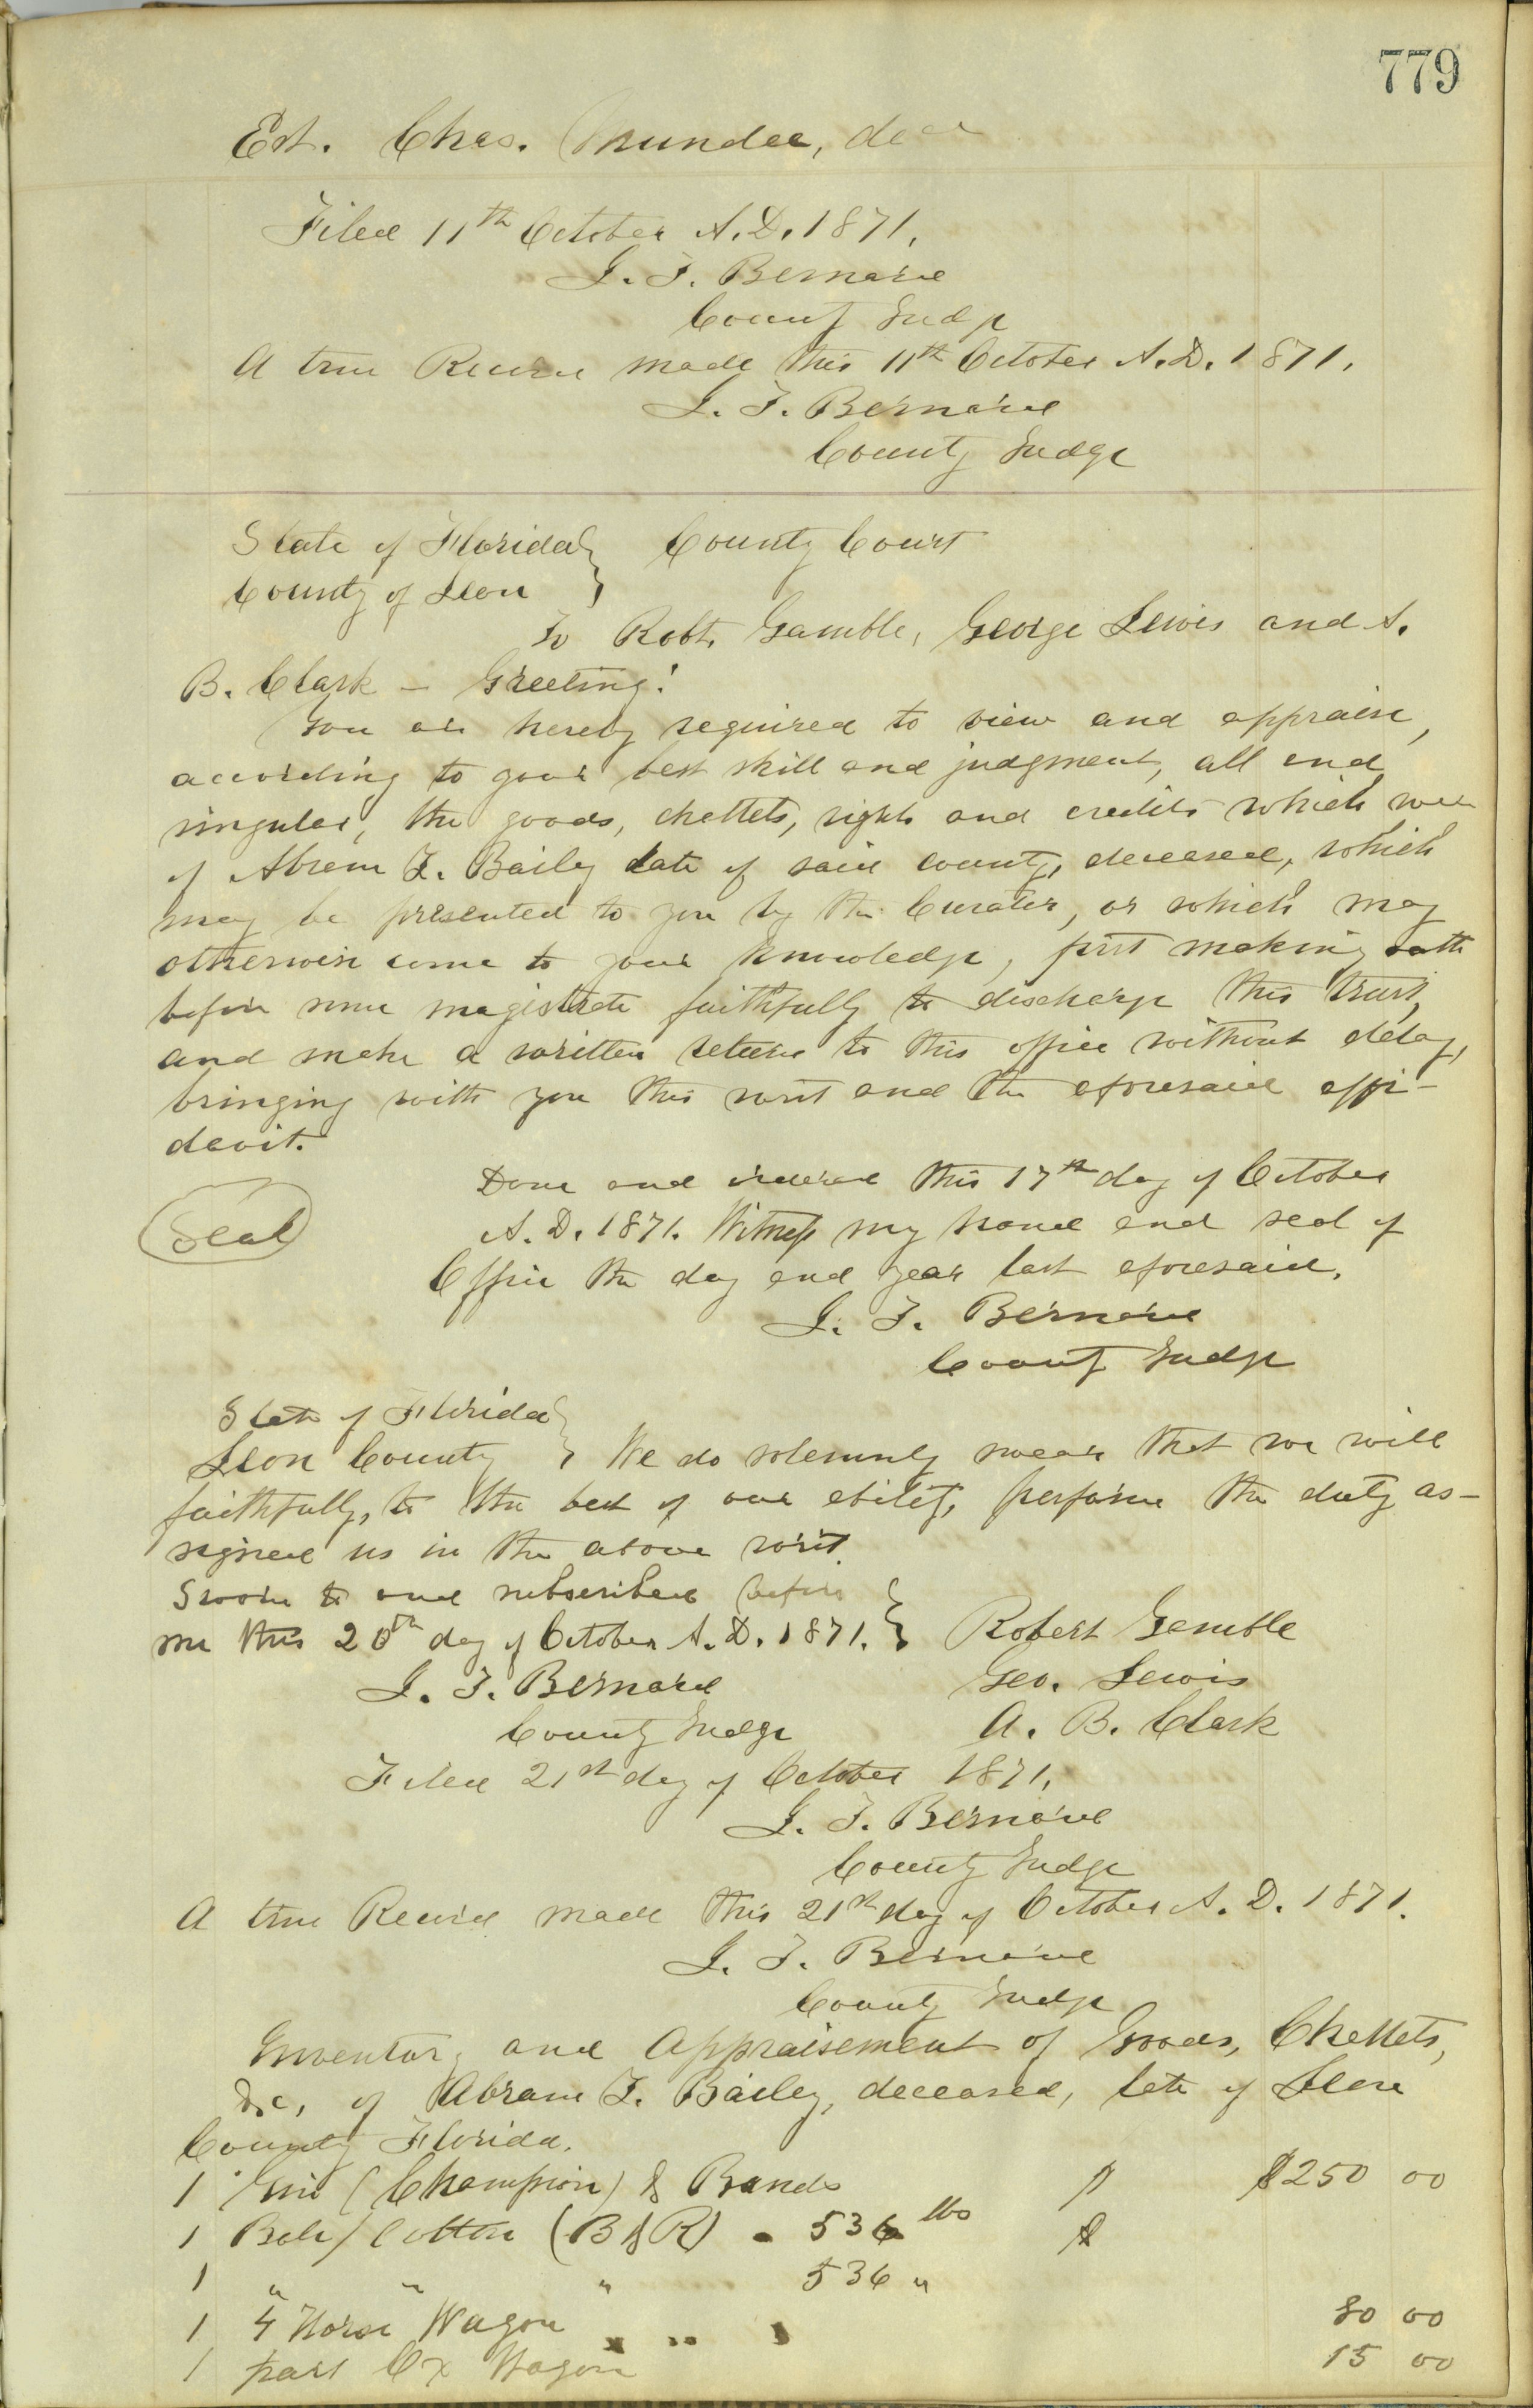 779
Est. Chas. Munder, decd
Filed 11th October A.D. 1871.
J. T. Bernard
County Judge
A true Record made this 11th October A.D. 1871.
J. T. Bernard
County Judge
State of Florida } County Court
County of Leon }
To Robt. Gamble, George Lewis and A.
B. Clark – Greeting:
You are hereby required to view and appraise,
according to your best skill and judgment, all and
singular, the goods, chattels, rights and credits which were
of Abram T. Baily late of said county, deceased, which
may be presented to you by the Curator, or which may
otherwise come to your knowledge, first making oath
before some magistrate faithfully to discharge this trust,
and make a written return to this office without delay,
bringing with you this writ and the aforesaid affi-
davit.
Done and ordered this 17th day of October
(Seal) A. D. 1871. Witness my hand and seal of
Office the day and year last aforesaid.
J. T. Bernard
County Judge
State of Florida }
Leon County } We do solemnly swear that we will
faithfully, to the best of our ability, perform the duty as-
signed us in the above writ.
Sworn to and subscribed before }
me this 20th day of October A.D. 1871. } Robert Gamble
J. T. Bernard Geo. Lewis
County Judge A. B. Clark
Filed 21st day of October 1871.
J. T. Bernard
County Judge
A true Record made this 21st day of October A. D. 1871.
J. T. Bernard
County Judge
Inventory and Appraisement of Goods, Chattels,
&c, of Abram T. Bailey, deceased, late of Leon
County Florida.
1 Gin (Champion) & Bands $250 00
1 Bale Cotton (B & R) 536 lbs
1 " " " 536 "
1 4 Horse Wagon 80 00
1 part Ox Wagon 15 00